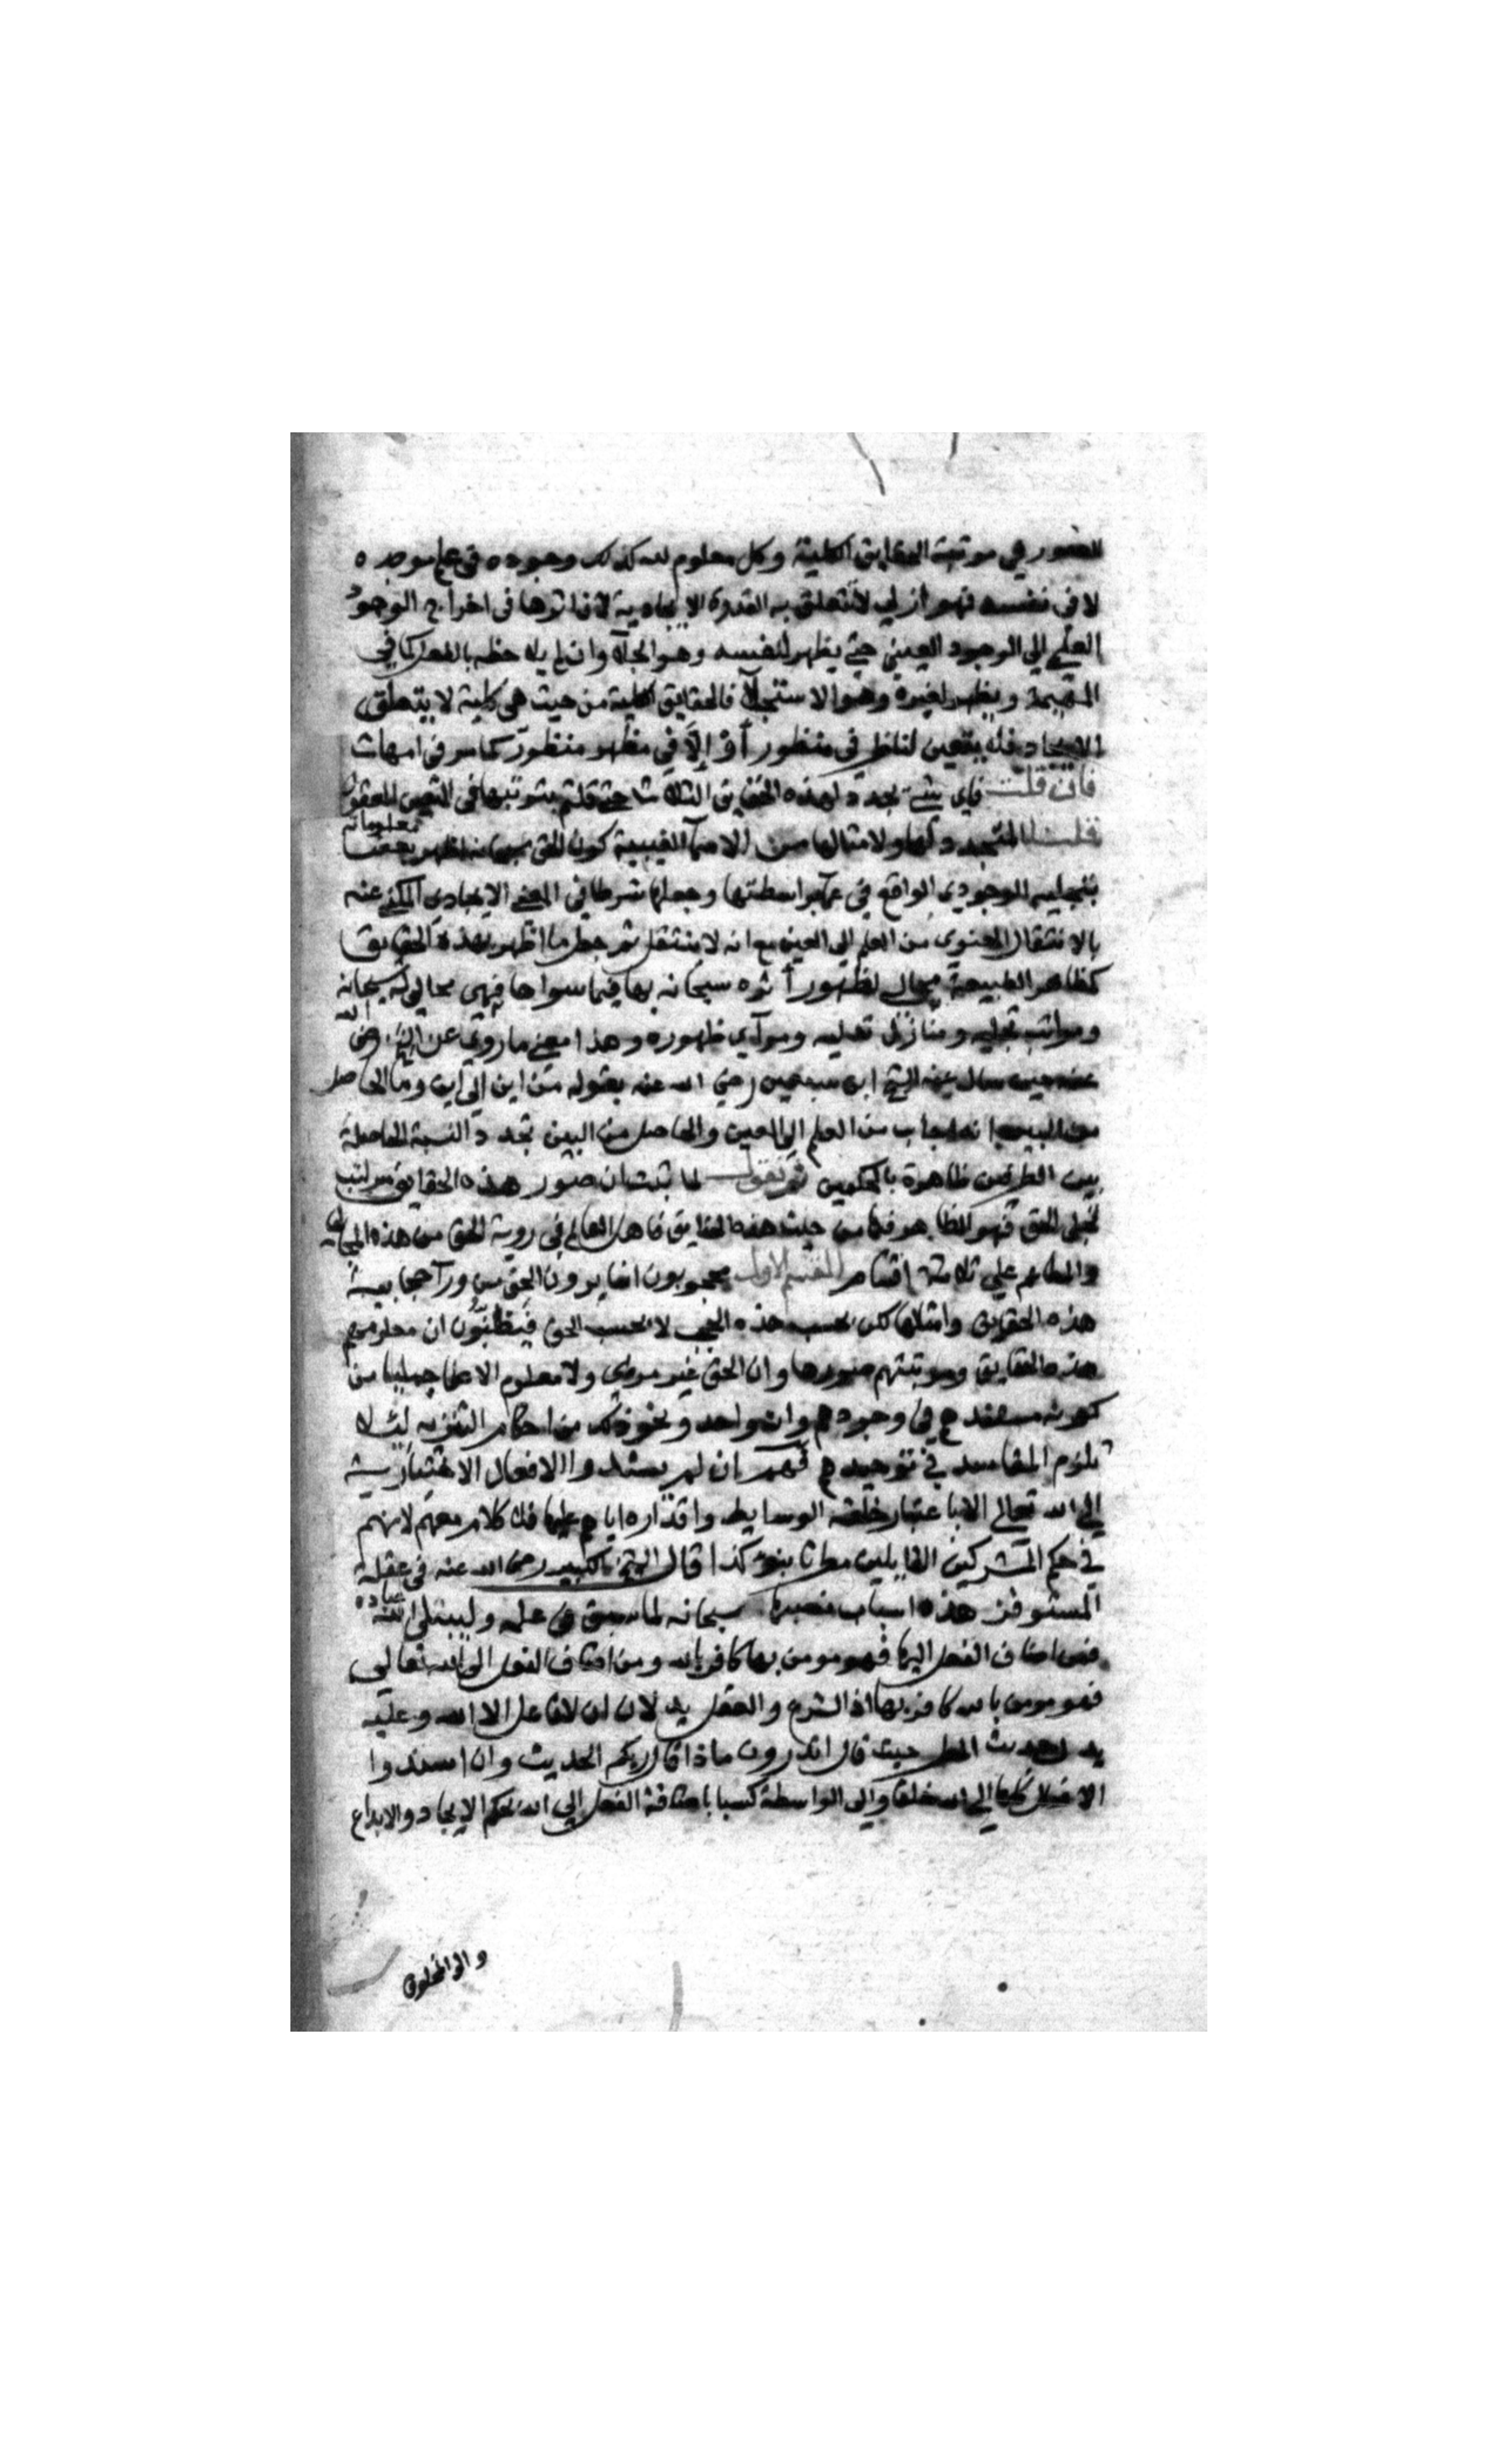 الصور في مرتبة الحقايق الكلية وكل معلوم لله كذلك وجوده في علم موجده
لا في نفسه فهو ازلي لا تتعلق به القدرة الايجادية لان اثرها في اخراج الوجود
العلمي الي الوجود العيني حتي يظهر لنفسه وهو الجلآ وان لم يلاحظه بالفعل كما في
المهيمة ويظهر لغيره وهو الاستجلآ فالحقايق الكلية من حيث هي كلية لا يتعلق
الايجاد فلا يتعين لناظر في منظور أوْ إلّا في مظهر منظور كما مر في امهات
فان قلت فاي شيء تجدد لهذه الحقايق الثلاث حتي قلتم بمرتبتها في التعين المعقول
قلنا المتجدد لها ولامثالها من الاسمآ الغيبية كون الحق سبحانه اظهر بعض معلوماته
بتجليه الوجودي الواقع في بواسطتها وجعلها شرطا في المعني الايجادي المكني عنه
بالانتقال المعنوي من العلم الي العين مع انه لا ينتقل ثم جعل ما اظهر بهذه الحقايق
كظاهر الطبيعة مجالي لظهور أثره سبحانه بها فيما سواها فهي مجالي له سبحانه
ومراتب تجليه ومنازل تدليه ومرآي ظهوره وهذا معني ما روي عن الشيخ رضي الله
عنه حين سال عنه الشيخ ابن سبعين رضي الله عنه بقوله من اين الي اين وما الحاصل
من البين انه اجاب من العلم الي العين والحاصل من البين تجدد النسبة الحاصلة
بين الطرفين ظاهرة بالحكمين ثم نقول لما ثبت ان صور هذه الحقايق مراتب
تجلي الحق فهو الظاهر فيها من حيث هذه الحقايق فاهل العالم في روية الحق من هذه المجالي
والمظاهر علي ثلاثة اقسام القسم الاول محجوبون انما يرون الحق من ورآ حجابية
هذه الحقايق وامثالها لكن بحسب هذه الحجب لا بحسب الحق فيظنّون ان معلومهم
هذه الحقايق ومرتبتهم صورها وان الحق غير مرئي ولا معلوم الا علما جمليا من
كونه مستندهم في وجودهم وانه واحد ونحو ذلك من احكام التنزيه لئلا
تلزم المفاسد في توحيدهم فهم ان لم يسندوا الافعال الاختيارية
الي الله تعالي الا باعتبار خلقه الوسايط واقداره اياهم عليها فلا كلام معهم لانهم
في حكم المشركين القايلين مطرنا بنوء كذا قال الشيخ الكبير رضي الله عنه في عقلة
المستوفز هذه اسباب نصبها سبحانه لما سبق في علمه وليبتلي الله عباده
فمن اضاف الفعل اليها فهو مومن بها كافر بالله ومن اضاف الفعل الي الله تعالي
فهو مومن بالله كافر بها اذ الشرع والعقل يدلان ان لا فاعل الا الله وعليه
يدل حديث المطر حيث قال اتدرون ماذا قال ربكم الحديث وان اسندوا
الافعال كلها الي الله خلقا والي الواسطة كسبا باضافة الفعل الي الله بحكم الايجاد والابداع
والي المخلوق